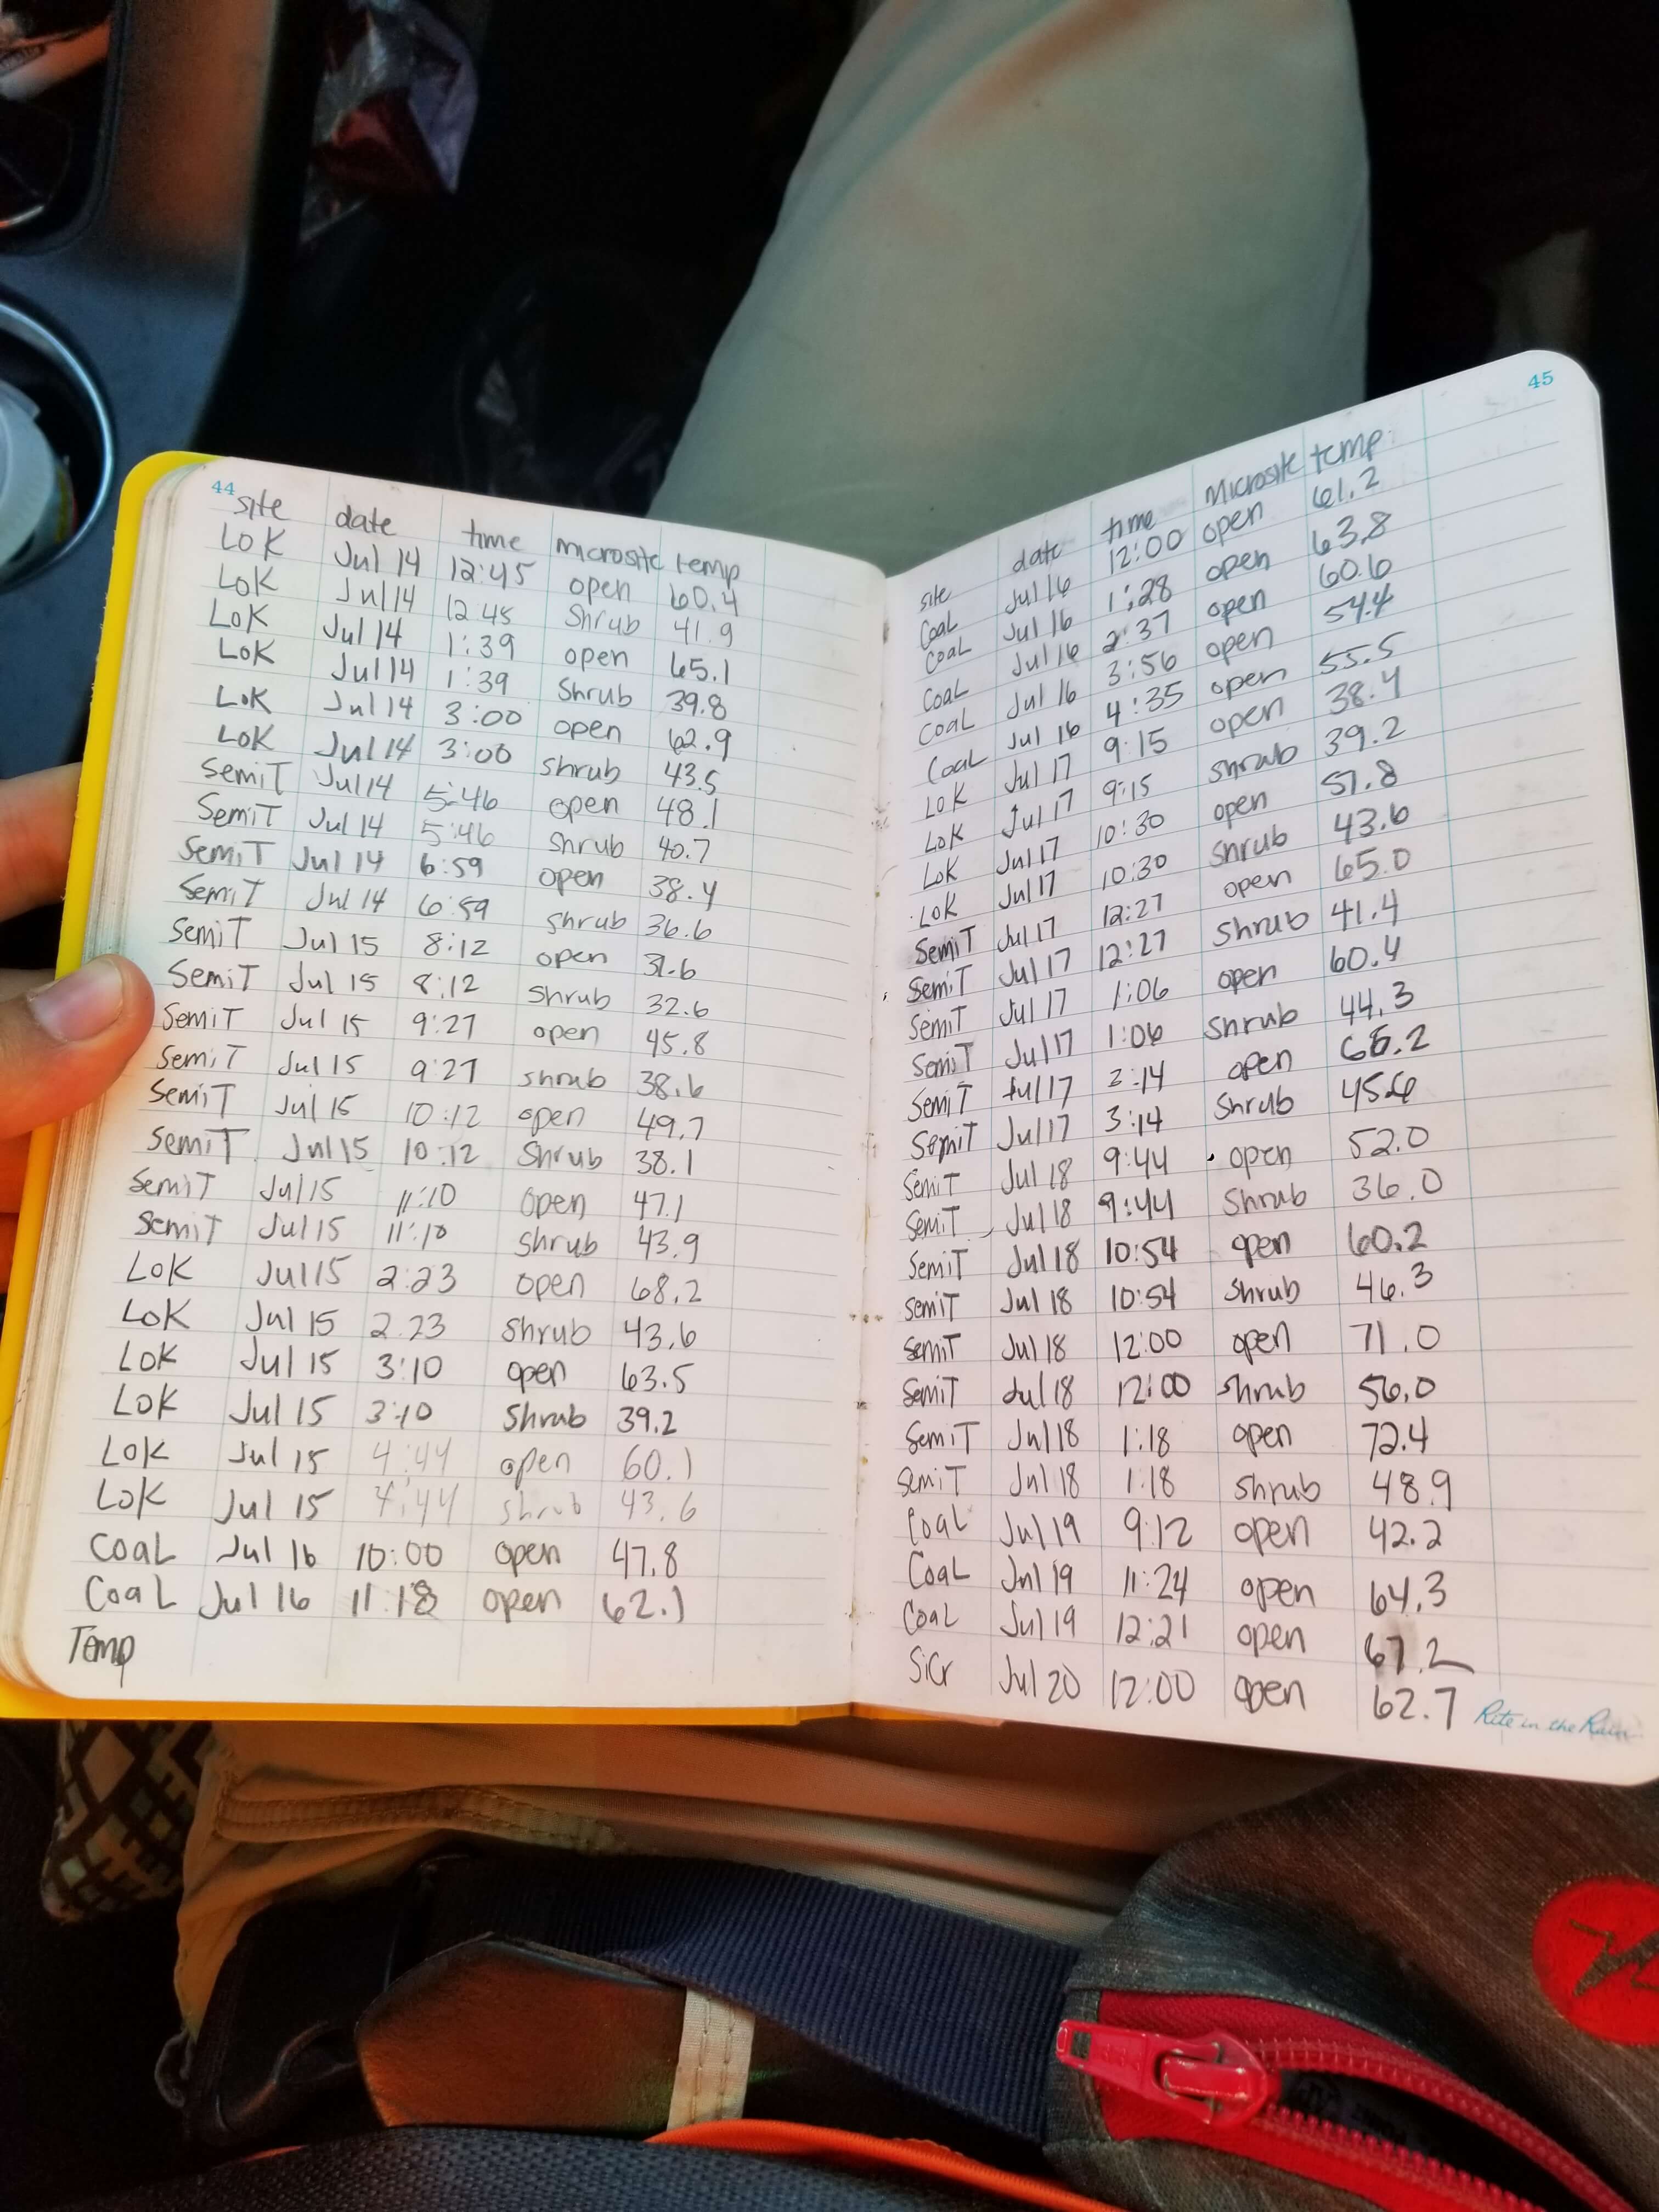 44
site date time microsite temp
LoK Jul 14 12:45 open 60.4
LoK Jul 14 12:45 Shrub 41.9
LoK Jul 14 1:39 open 65.1
LoK Jul 14 1:39 Shrub 39.8
LoK Jul 14 3:00 open 62.9
LoK Jul 14 3:00 shrub 43.5
SemiT Jul 14 5:46 open 48.1
SemiT Jul 14 5:46 shrub 40.7
SemiT Jul 14 6:59 open 38.4
SemiT Jul 14 6:59 shrub 36.6
SemiT Jul 15 8:12 open 31.6
SemiT Jul 15 8:12 shrub 32.6
SemiT Jul 15 9:27 open 45.8
SemiT Jul 15 9:27 shrub 38.6
SemiT Jul 15 10:12 open 49.7
SemiT Jul 15 10:12 Shrub 38.1
SemiT Jul 15 11:10 open 47.1
SemiT Jul 15 11:10 shrub 43.9
LoK Jul 15 2:23 open 68.2
LoK Jul 15 2:23 shrub 43.6
LoK Jul 15 3:10 open 63.5
LoK Jul 15 3:10 Shrub 39.2
LoK Jul 15 4:44 open 60.1
LoK Jul 15 4:44 shrub 43.6
CoaL Jul 16 10:00 open 47.8
CoaL Jul 16 11:18 open 62.1
Temp
45
site date time Microsite temp
CoaL Jul 16 12:00 open 61.2
CoaL Jul 16 1:28 open 63.8
CoaL Jul 16 2:37 open 60.6
CoaL Jul 16 3:56 open 54.4
CoaL Jul 16 4:35 open 55.5
LoK Jul 17 9:15 open 38.4
LoK Jul 17 9:15 shrub 39.2
LoK Jul 17 10:30 open 57.8
LoK Jul 17 10:30 shrub 43.6
SemiT Jul 17 12:27 open 65.0
SemiT Jul 17 12:27 shrub 41.4
SemiT Jul 17 1:06 open 60.4
SemiT Jul 17 1:06 shrub 44.3
SemiT Jul 17 2:14 open
SemiT Jul 17 3:14 Shrub
SemiT Jul 18 9:44 open 52.0
SemiT Jul 18 9:44 Shrub 36.0
SemiT Jul 18 10:54 open 60.2
SemiT Jul 18 10:54 shrub 46.3
SemiT Jul 18 12:00 open 71.0
SemiT Jul 18 12:00 shrub 56.0
SemiT Jul 18 1:18 open 72.4
SemiT Jul 18 1:18 shrub 48.9
CoaL Jul 19 9:12 open 42.2
CoaL Jul 19 11:24 open 64.3
CoaL Jul 19 12:21 open 67.2
SiCr Jul 20 12:00 open 62.7
Rite in the Rain